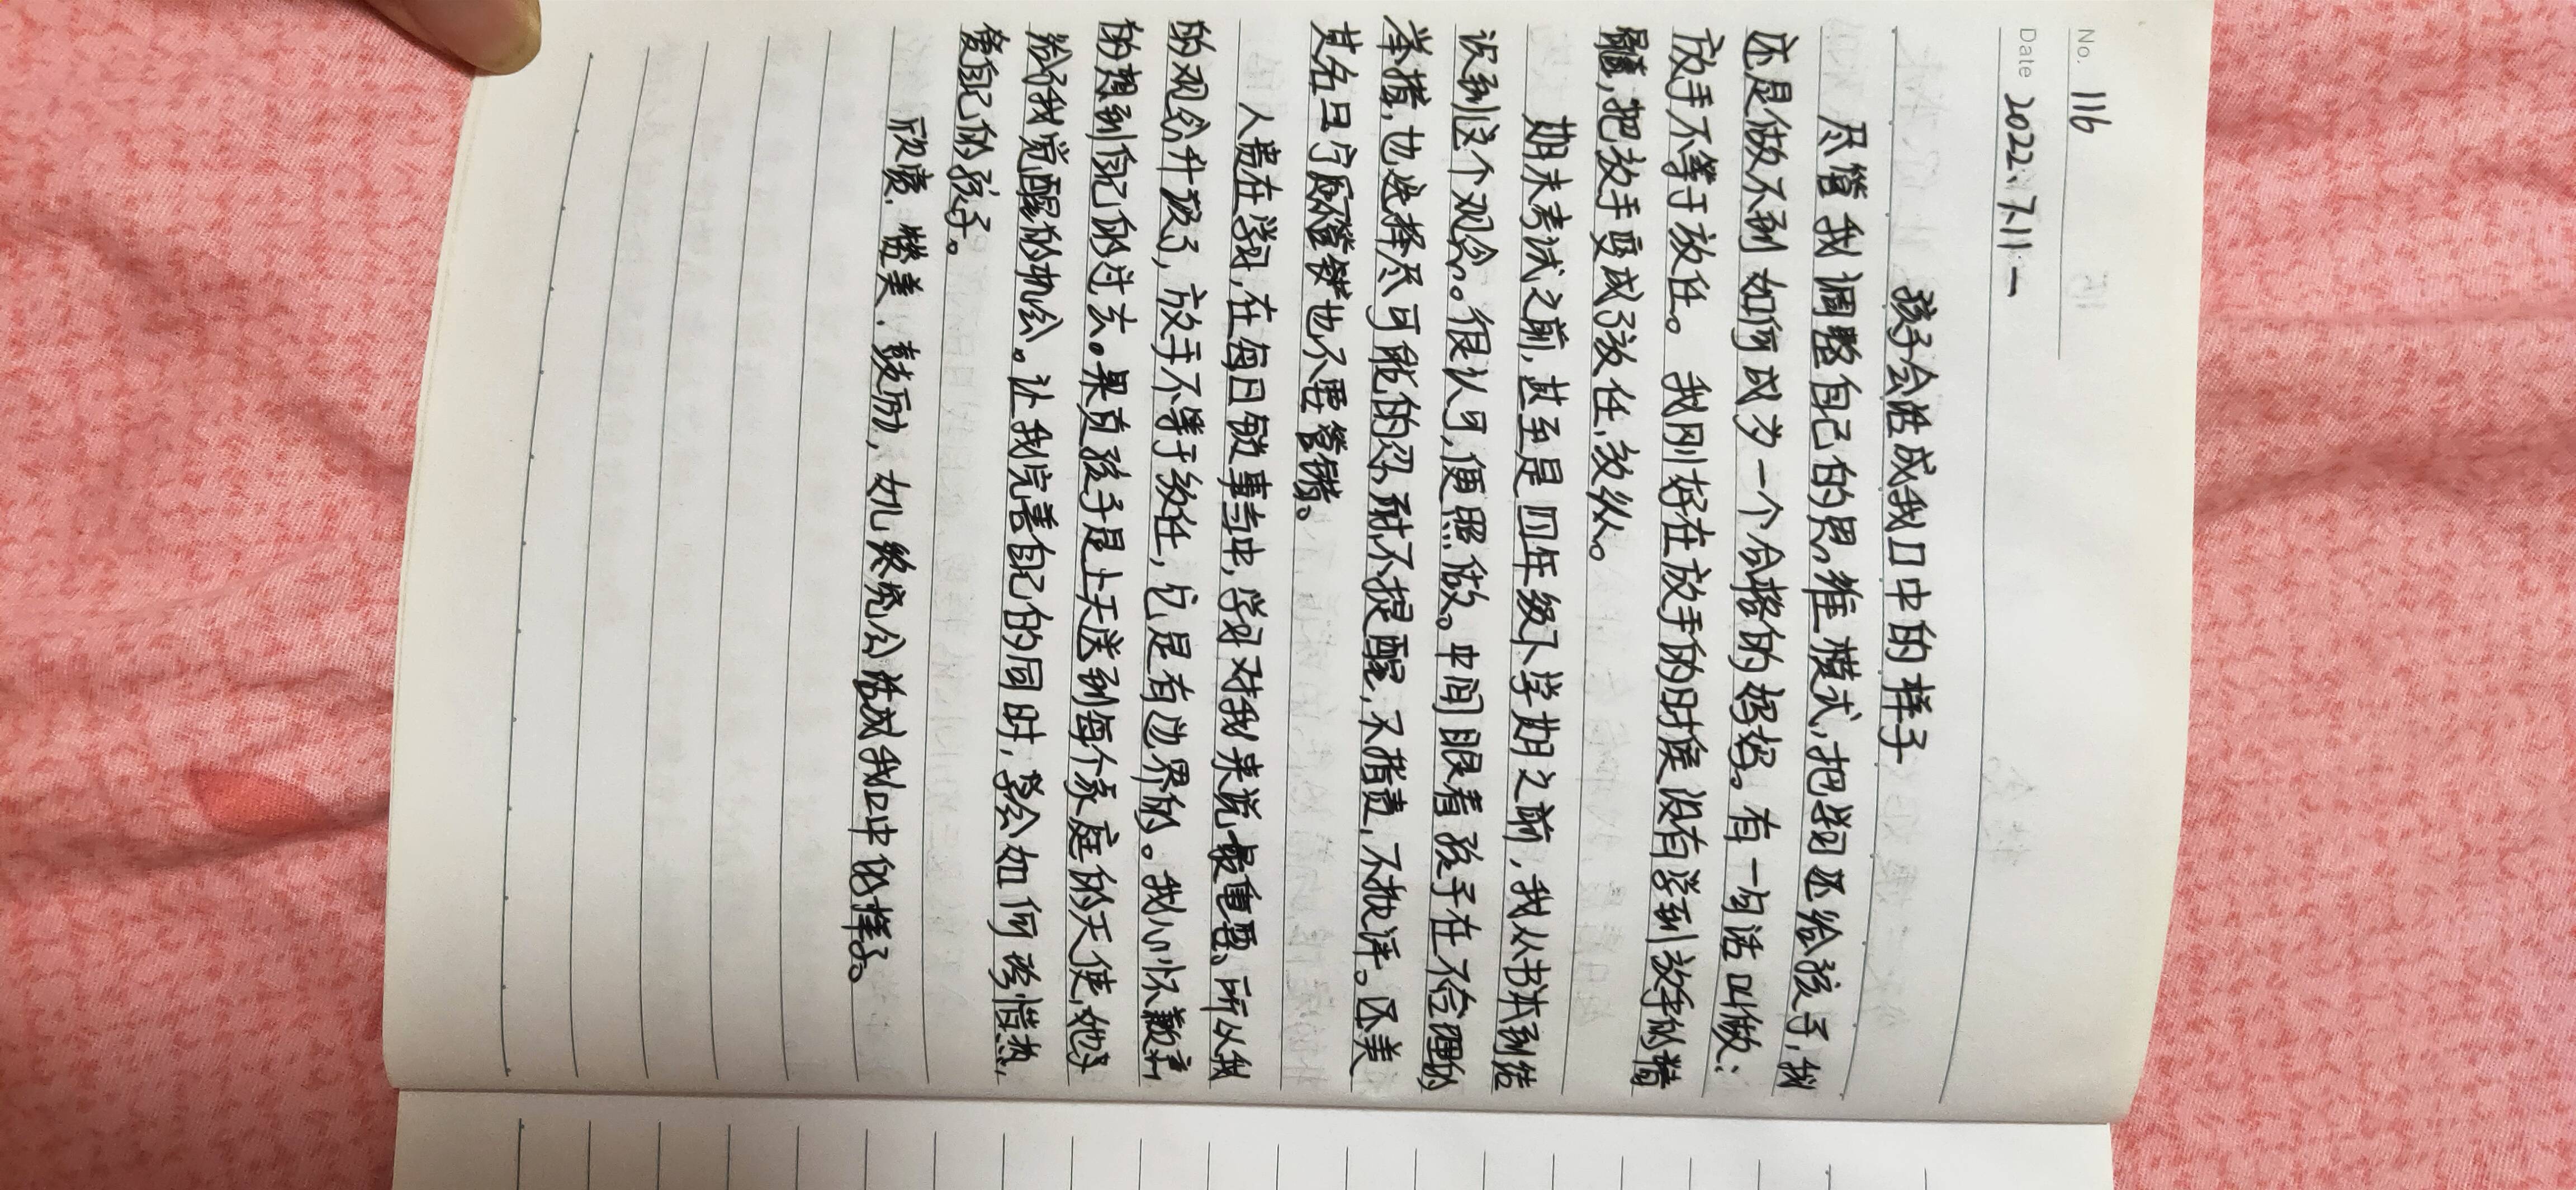 No. 116
Date 2022.7.11 一
孩子会活成我口中的样子
尽管我调整自己的思维模式,把学习还给孩子,我
还是做不到如何成为一个合格的妈妈。有一句话叫做:
放手不等于放任。我刚好在放手的时候没有学到放手的精
髓,把放手变成了放任,放纵。
期末考试之前,甚至是四年级下学期之前,我从书本到结
识到这个观念。很认可,便照做。中间眼看孩子在不合理的
举措,也选择尽可能的忍耐不提醒,不指责,不批评。还美
其名曰宁愿不管错也不要管错。
人贵在学习,在每日做事当中,学习对我来说最重要。所以我
的观念升级了,放手不等于放任,它是有边界的。我心怀歉意
的想到自己的过去。果真孩子是上天送到每个家庭的天使,她
给予我觉醒的机会。让我完善自己的同时,学会如何珍惜,热
爱自己的孩子。
欣赏,赞美,鼓励,女儿终究会活成我口中的样子。